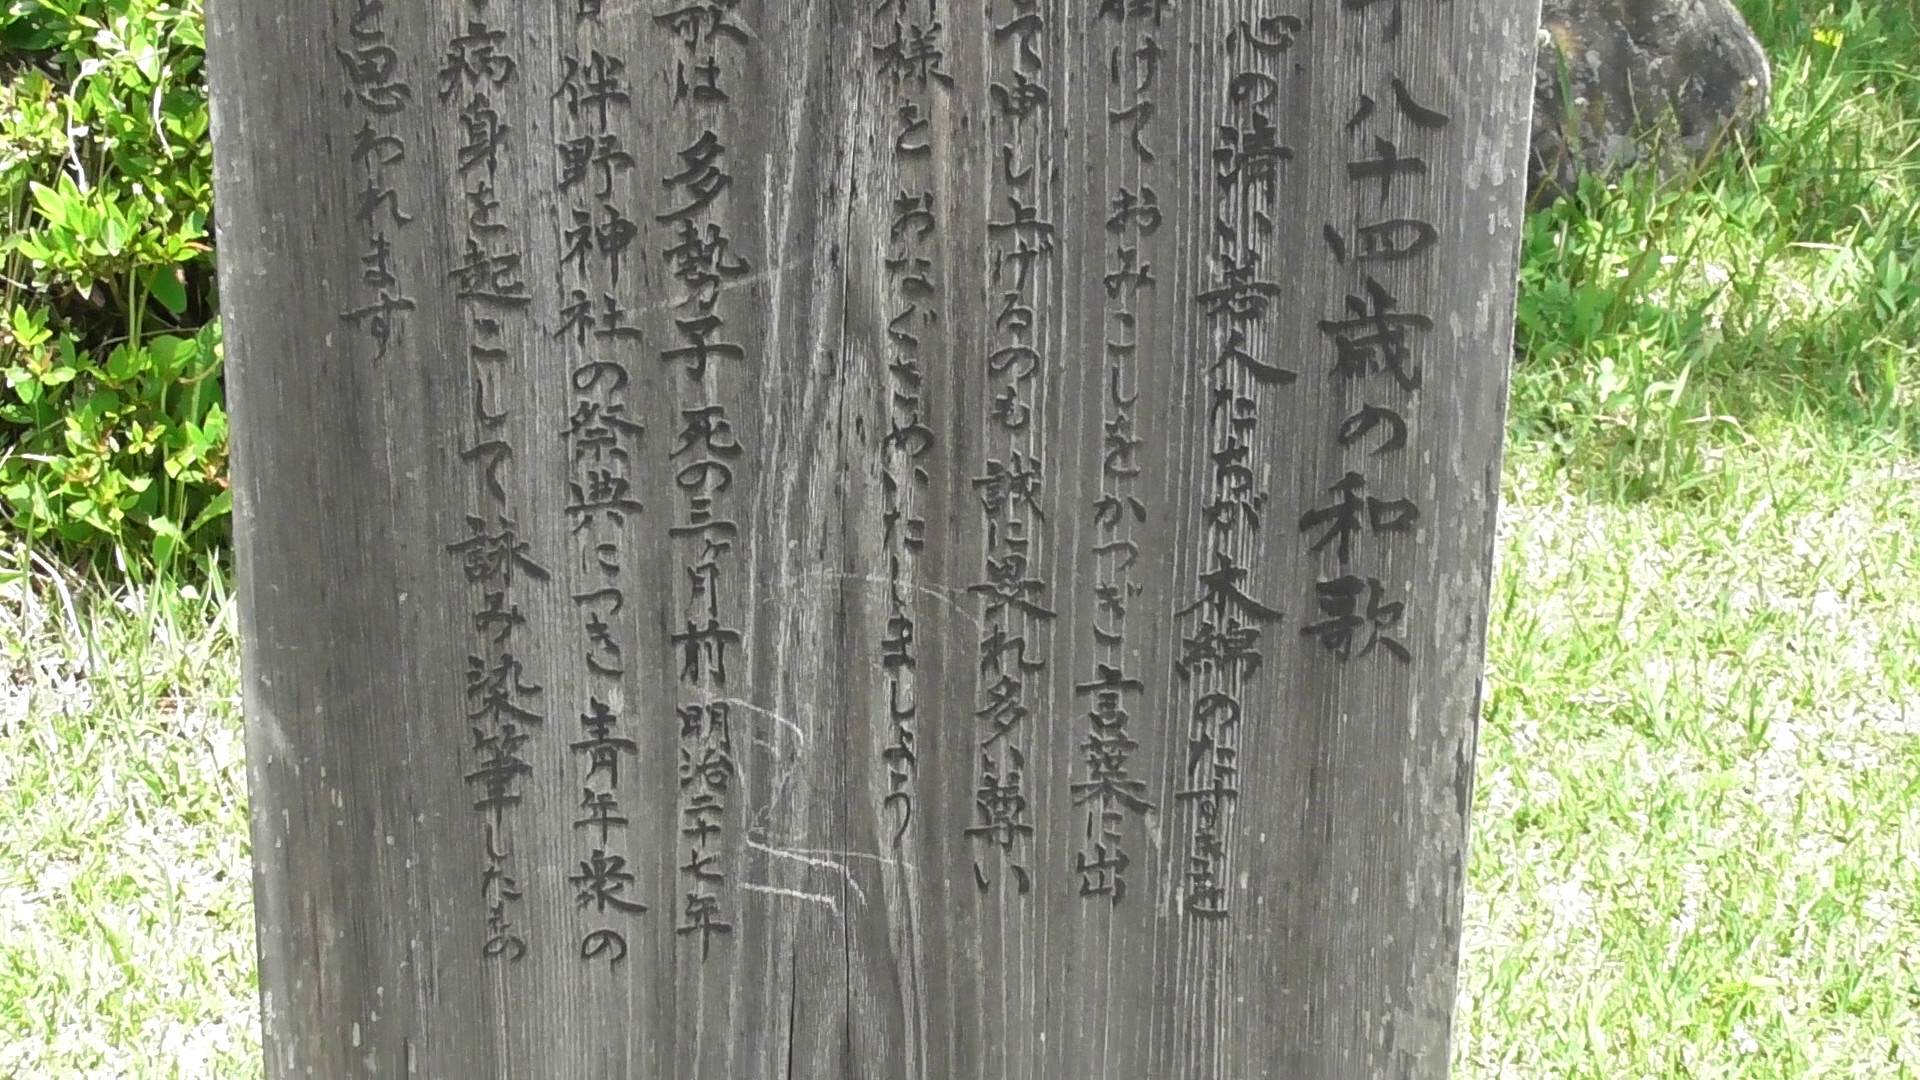 八十四歳の和歌
心の清い若人たちが木綿のたすきを
掛けておみこしをかつぎ言葉に出
て申し上げるのも誠に畏れ多い尊い
様をおなぐさめいたしましょう
歌は多勢子死の三ヶ月前明治二十七年
伴野神社の祭典につき青年衆の
病身を起こして詠み染筆したもの
と思われます